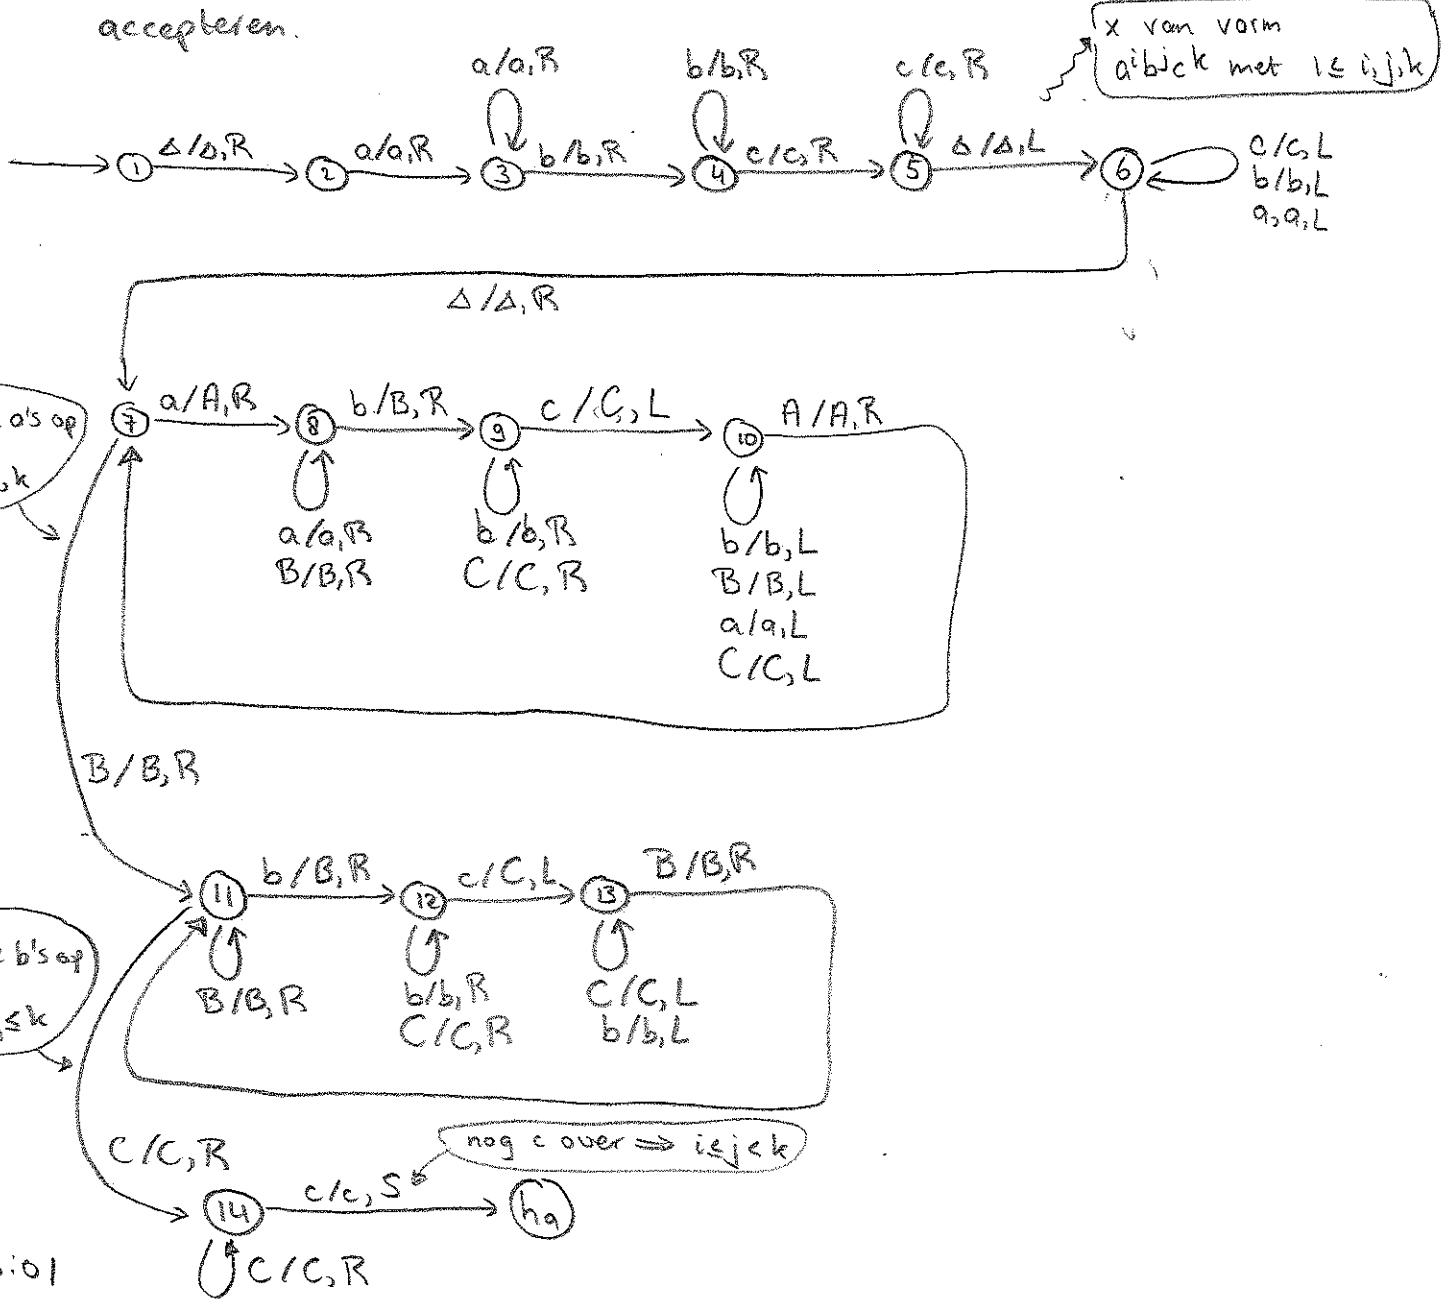 accepteren.
x van vorm
aⁱbʲcᵏ met 1≤ i,j,k
a/a,R
b/b,R
c/c,R
1
Δ/Δ,R
2
a/a,R
3
b/b,R
4
c/c,R
5
Δ/Δ,L
6
c/c,L
b/b,L
a,a,L
Δ/Δ,R
a's op
,k
7
a/A,R
8
b/B,R
9
c/C,L
10
A/A,R
a/a,R
B/B,R
b/b,R
C/C,R
b/b,L
B/B,L
a/a,L
C/C,L
B/B,R
b's op
≤k
11
b/B,R
12
c/C,L
13
B/B,R
B/B,R
b/b,R
C/C,R
C/C,L
b/b,L
C/C,R
nog c over ⇒ i≤j<k
14
c/c,S
ha
C/C,R